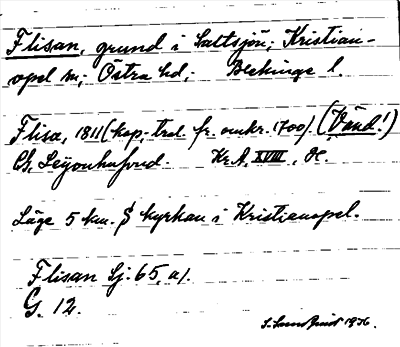 Flisan, grund i Saltsjön; Kristian-
opel sn; Östra hd; Blekinge l.
Flisa, 1811 (kop. trol. fr. omkr. 1700). (Vänd!)
G. Leijonhufvud. Kr. A, XVIII,
Läge 5 km. S kyrkan i Kristianopel.
Flisan Sj. 65, a).
G. 12.
S. Lundquist 1936.